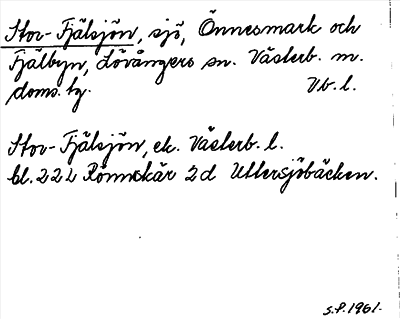 Stor-Fjälsjön, sjö, Önnesmark och
Fjälbyn, Lövångers sn. Västerb. m.
doms. tg. Vb. l.
Stor-Fjälsjön, ek. Västerb. l.
bl. 22 L Rönnskär 2d Uttersjöbäcken.
S.P. 1961.